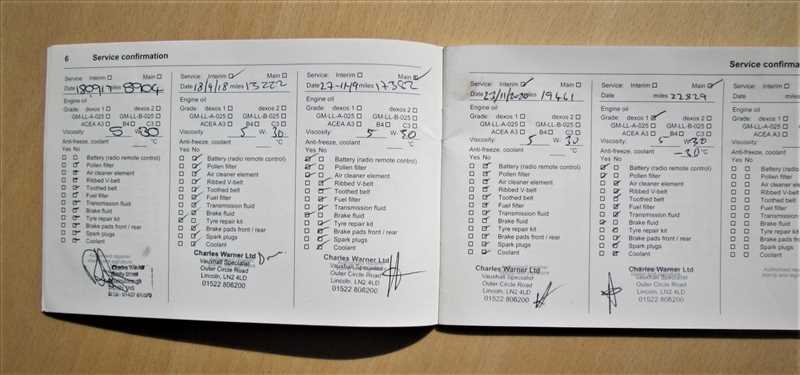 6 Service confirmation
Service: Interim Main
Date 180917 miles 8904
Engine oil
Grade: dexos 1 dexos 2
GM-LL-A-025 GM-LL-B-025
ACEA A3 B4 C3
Viscosity: 5 W- 30
Anti-freeze, coolant °C
Yes No
Battery (radio remote control)
Pollen filter
Air cleaner element
Ribbed V-belt
Toothed belt
Fuel filter
Transmission fluid
Brake fluid
Tyre repair kit
Brake pads front / rear
Spark plugs
Coolant
Service: Interim Main
Date 13/9/18 miles 13222
Engine oil
Grade: dexos 1 dexos 2
GM-LL-A-025 GM-LL-B-025
ACEA A3 B4 C3
Viscosity: 5 W- 30
Anti-freeze, coolant °C
Yes No
Battery (radio remote control)
Pollen filter
Air cleaner element
Ribbed V-belt
Toothed belt
Fuel filter
Transmission fluid
Brake fluid
Tyre repair kit
Brake pads front / rear
Spark plugs
Coolant
Charles Warner Ltd
Vauxhall Specialist
Outer Circle Road
Lincoln, LN2 4LD
01522 806200
Service: Interim Main
Date miles 17352
Engine oil
Grade: dexos 1 dexos 2
GM-LL-A-025 GM-LL-B-025
ACEA A3 B4 C3
Viscosity: 5 W- 30
Anti-freeze, coolant °C
Yes No
Battery (radio remote control)
Pollen filter
Air cleaner element
Ribbed V-belt
Toothed belt
Fuel filter
Transmission fluid
Brake fluid
Tyre repair kit
Brake pads front / rear
Spark plugs
Coolant
Charles Warner Ltd
Vauxhall Specialist
Outer Circle Road
Lincoln, LN2 4LD
01522 806200
Service confirma
Service: Interim Main
Date 23/11/2020 miles 19461
Engine oil
Grade: dexos 1 dexos 2
GM-LL-A-025 GM-LL-B-025
ACEA A3 B4 C3
Viscosity: 5 W- 30
Anti-freeze, coolant °C
Yes No
Battery (radio remote control)
Pollen filter
Air cleaner element
Ribbed V-belt
Toothed belt
Fuel filter
Transmission fluid
Brake fluid
Tyre repair kit
Brake pads front / rear
Spark plugs
Coolant
Charles Warner Ltd
Vauxhall Specialist
Outer Circle Road
Lincoln, LN2 4LD
01522 806200
Service: Interim Main
Date miles 22829
Engine oil
Grade: dexos 1 dexos 2
GM-LL-A-025 GM-LL-B-025
ACEA A3 B4 C3
Viscosity: 5 W- 30
Anti-freeze, coolant -30 °C
Yes No
Battery (radio remote control)
Pollen filter
Air cleaner element
Ribbed V-belt
Toothed belt
Fuel filter
Transmission fluid
Brake fluid
Tyre repair kit
Brake pads front / rear
Spark plugs
Coolant
Charles Warner Ltd
Vauxhall Specialist
Outer Circle Road
Lincoln, LN2 4LD
01522 806200
Service: Inte
Date
Engine oil
Grade: dexo
GM-LL-A
ACE
Viscosity:
Anti-freeze, co
Yes No
Battery
Pollen
Air clea
Ribbed
Toothed
Fuel filte
Transmis
Brake flu
Tyre rep
Brake pa
Spark plu
Coolant